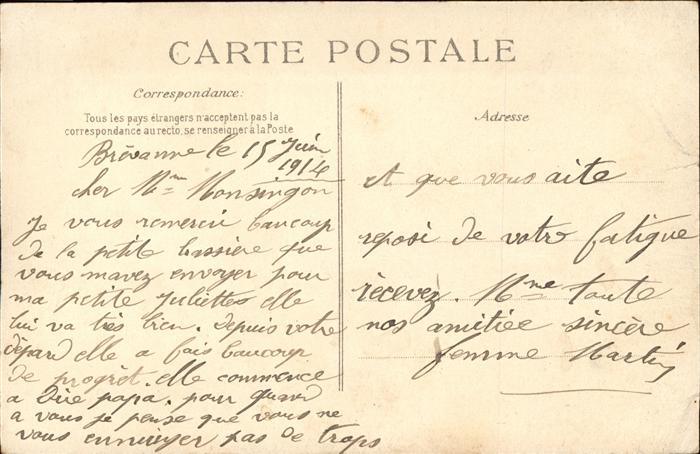 CARTE POSTALE
Correspondance:
Tous les pays étrangers n'acceptent pas la
correspondance au recto, se renseigner à la Poste
Brévanne le 15 Juin
1914
cher Mme Monsingon
Je vous remerciu baucoup
de la petite brassière que
vous mavez envoyer pour
ma petite Juliettes elle
lui va très bien. depuis votre
départ elle a fais baucoup
de progrèt. elle commence
a dire papa. pour quand
a vous je pense que vous ne
vous ennuiyer pas de trops
Adresse
et que vous aite
reposi de votre fatigue
recevez. Mme toute
nos amitiée sincère
femme Martin